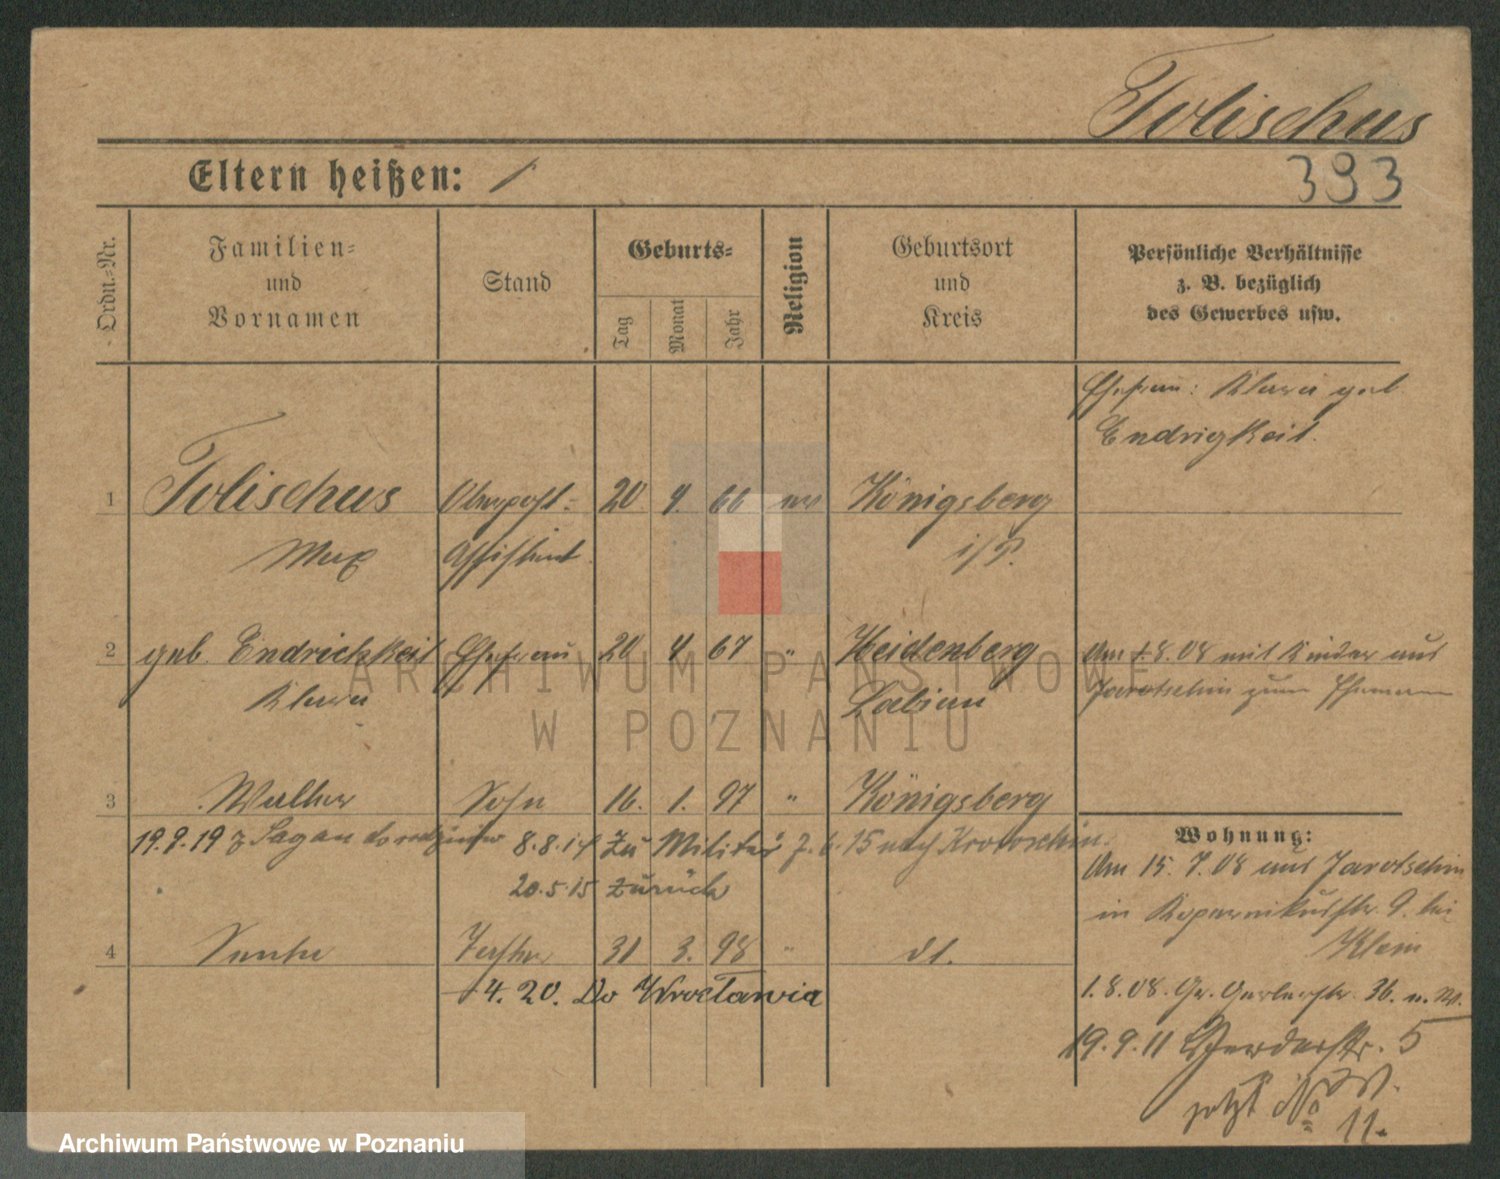 Tolischus
Eltern heißen: /
393
Ordn.-Nr.
Familien-
und
Vornamen
Stand
Geburts-
Tag
Monat
Jahr
Religion
Geburtsort
und
Kreis
Persönliche Verhältnisse
z. B. bezüglich
des Gewerbes usw.
Ehefrau: Klara geb.
Endrigkeit.
1 Tolischus Oberpost- 20 4. 66 ev Königsberg
Max Assistent i/P.
2 geb. Endrichkeit Ehefrau 20 4 67 " Heidenberg
Klara Labiau
Am 1.8.08 mit Kinder aus
Jarotschin zum Ehemann
3 Walter Sohn 16. 1. 97 " Königsberg
19.9.19 z Sagan do rodziców 8.8.14 Zu Militär 7.6.15 nach Krotoschin.
20.5.15 zurück
4 Tochter 31 3. 98 " dt.
4. 20. Do Wrocławia
Wohnung:
Am 15. 7. 08 aus Jarotschin
in Kopernikusstr. 9. bei
Klein
1.8.08. Gr. Gerberstr. 36.
19.9.11 5
jetzt No
11.
ARCHIWUM PAŃSTWOWE
W POZNANIU
Archiwum Państwowe w Poznaniu